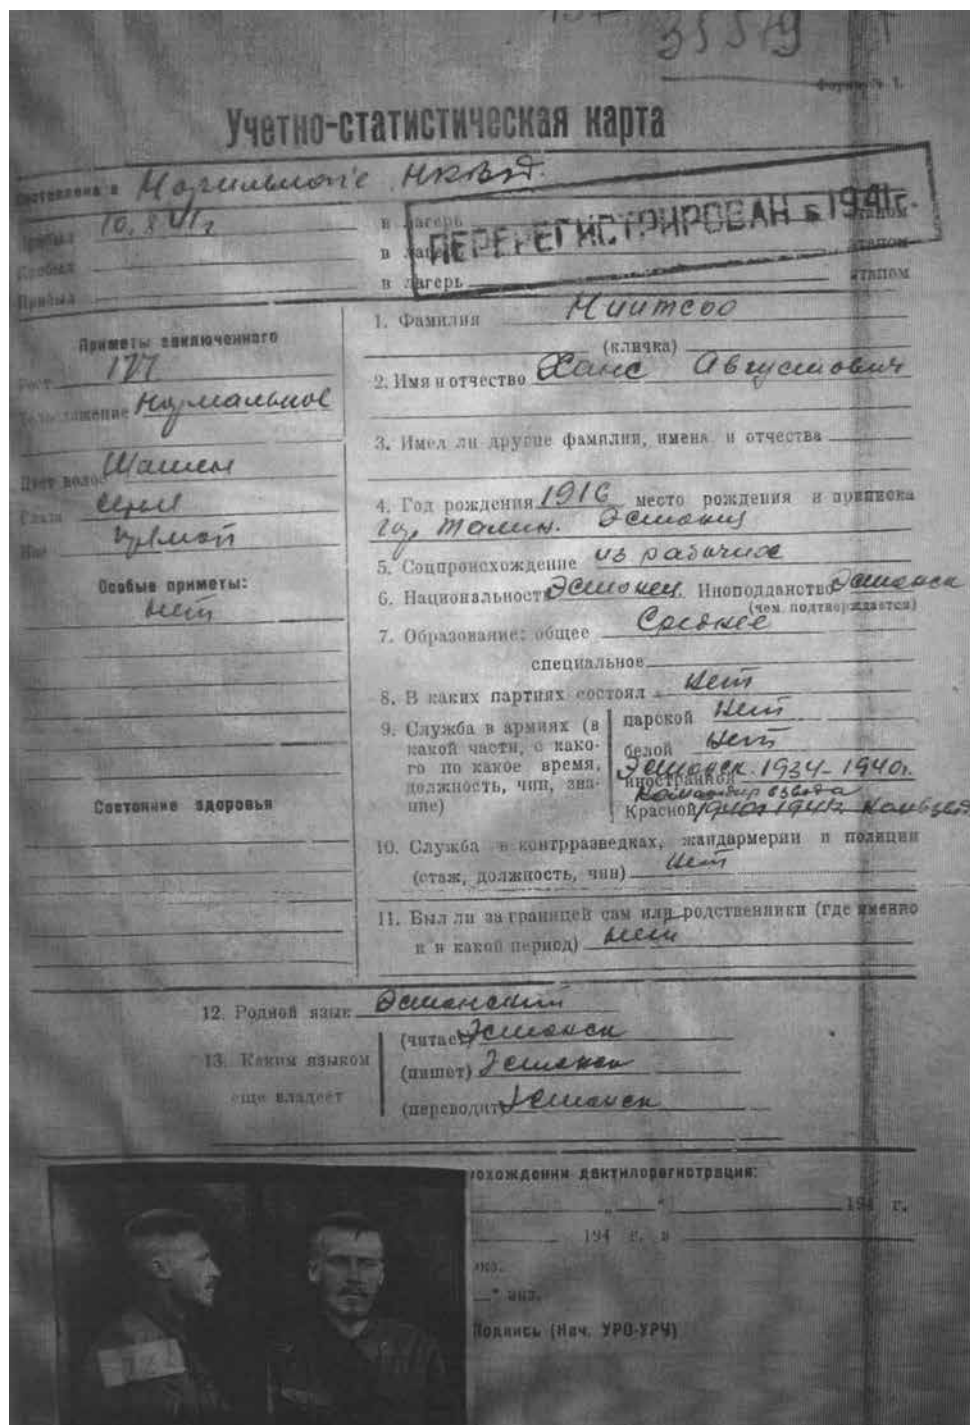 31579
Форма № 1.
Учетно-статистическая карта
Составлена в Норильлаге НКВД.
Прибыл 10.X 41г в лагерь этапом
ПЕРЕРЕГИСТРИРОВАН в 1941г.
Прибыл в лагерь этапом
Прибыл в лагерь этапом
Приметы заключенного
Рост 177
Телосложение Нормальное
Цвет волос
Глаза серые
Нос прямой
Особые приметы:
нет
Состояние здоровья
1. Фамилия Ниитсоо
(кличка)
2. Имя и отчество Ханс Августович
3. Имел ли другие фамилии, имена и отчества
4. Год рождения 1916 место рождения и приписка
гор. Талин. Эстония
5. Соцпроисхождение из рабочих
6. Национальность Эстонец. Иноподданство Эстонск
(чем подтверждается)
7. Образование: общее Среднее
специальное
8. В каких партиях состоял нет
9. Служба в армиях (в какой части, с како-го по какое время, должность, чин, зва-ние)
царской нет
белой нет
иностранной Эстонск. 1934-1940г.
Командир взвода
Красной 1940г 1941г Комвзвода
10. Служба в контрразведках, жандармерии и полиции
(стаж, должность, чин) нет
11. Был ли за границей сам или родственники (где именно
и в какой период) нет
12. Родной язык Эстонский
13. Каким языком
еще владеет
(читает) Эстонск
(пишет) Эстонск
(переводит) Эстонск
охождении дактилорегистрация:
„ “ 194 г.
194 г. в
экз.
“ экз.
Подпись (Нач. УРО-УРЧ)